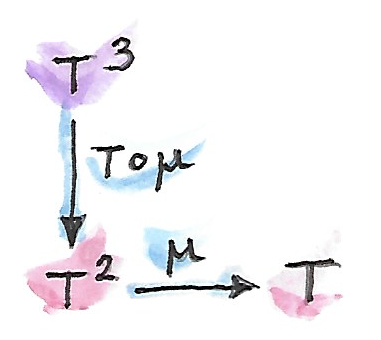 T³
T∘μ
T² μ T